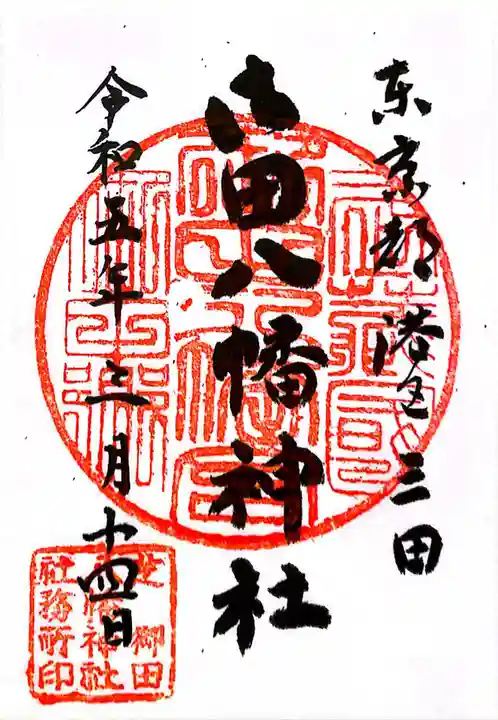 東京都港区三田
御田八幡神社
令和五年三月十四日
芝御田
八幡神社
社務所印